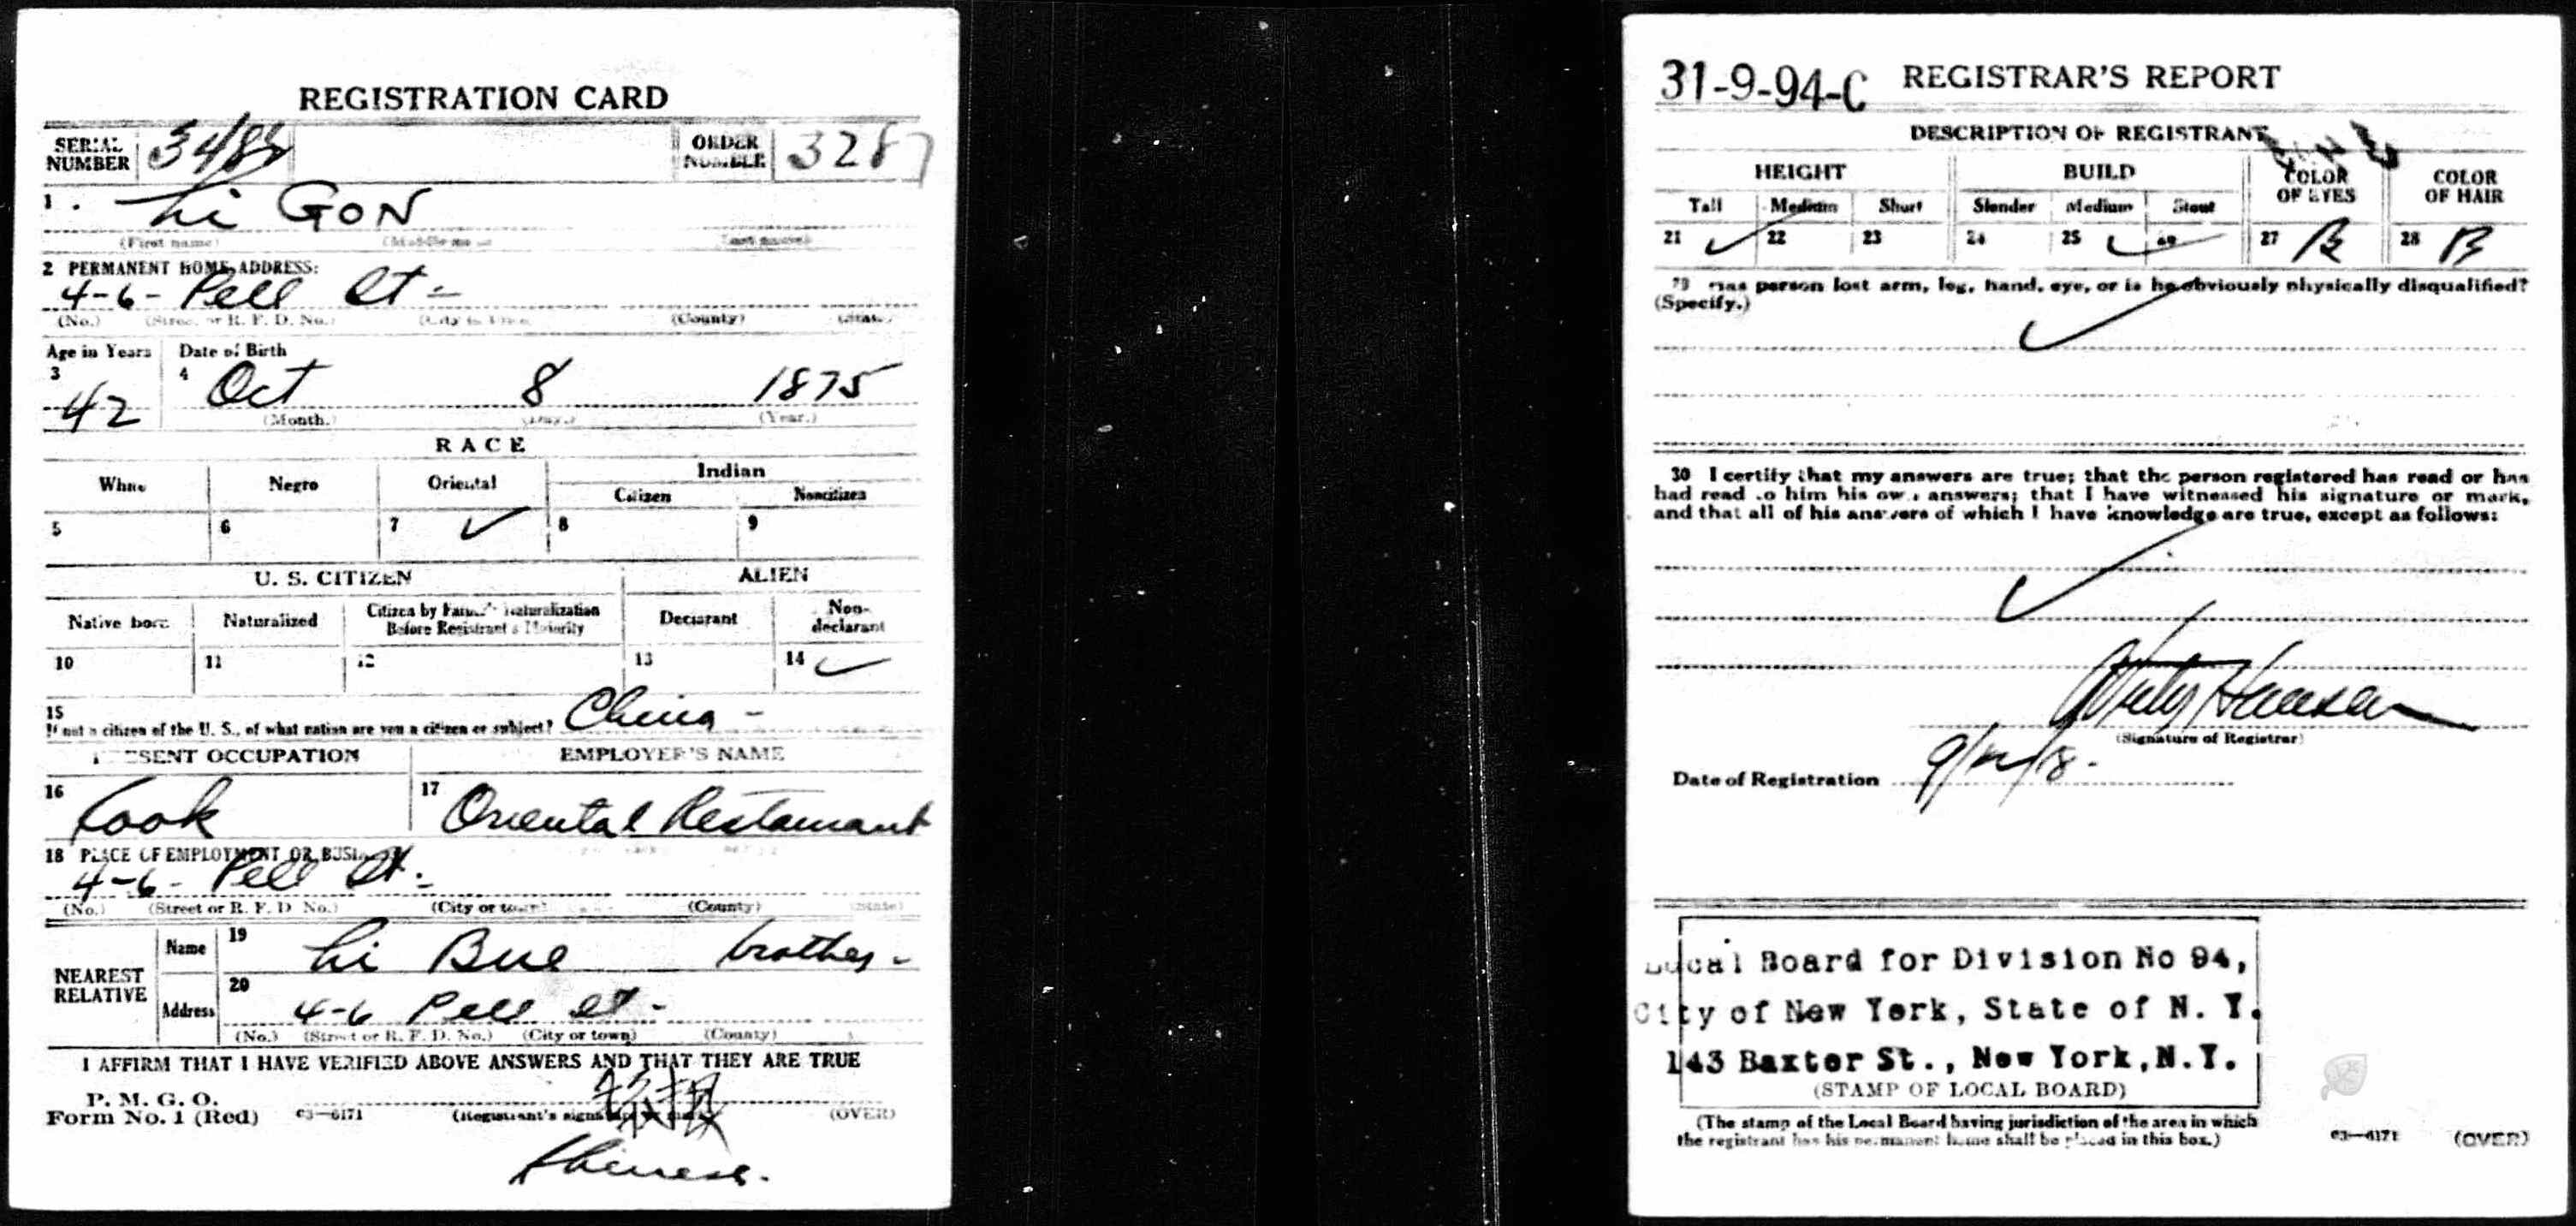 REGISTRATION CARD
SERIAL NUMBER 3488
ORDER NUMBER 3287
1 Li GON
(First name) (Middle name) (Last name)
2 PERMANENT HOME ADDRESS:
4-6- Pell St-
(No.) (Street or R. F. D. No.) (City or town) (County) (State)
Age in Years Date of Birth
3 4
42 Oct 8 1875
(Month.) (Day.) (Year.)
RACE
White Negro Oriental Indian
Citizen Noncitizen
5 6 7 ✓ 8 9
U. S. CITIZEN ALIEN
Native born Naturalized Citizen by Father's Naturalization Before Registrant's Majority Declarant Non-declarant
10 11 12 13 14 ✓
15
If not a citizen of the U. S., of what nation are you a citizen or subject? China -
PRESENT OCCUPATION EMPLOYER'S NAME
16 Cook 17 Oriental Restaurant
18 PLACE OF EMPLOYMENT OR BUSINESS
4-6- Pell St.-
(No.) (Street or R. F. D. No.) (City or town) (County) (State)
NEAREST RELATIVE
Name 19 Li Bue brother-
Address 20 4-6 Pell St-
(No.) (Street or R. F. D. No.) (City or town) (County)
I AFFIRM THAT I HAVE VERIFIED ABOVE ANSWERS AND THAT THEY ARE TRUE
P. M. G. O.
Form No. 1 (Red) 03—6171 (Registrant's signature or mark) (OVER)
Chinese.
31-9-94-C REGISTRAR'S REPORT
DESCRIPTION OF REGISTRANT
HEIGHT BUILD COLOR OF EYES COLOR OF HAIR
Tall Medium Short Slender Medium Stout
21 ✓ 22 23 24 25 ✓ 26 27 B 28 B
29 Has person lost arm, leg, hand, eye, or is he obviously physically disqualified?
(Specify.)
✓
30 I certify that my answers are true; that the person registered has read or has
had read to him his own answers; that I have witnessed his signature or mark,
and that all of his answers of which I have knowledge are true, except as follows:
✓
(Signature of Registrar)
Date of Registration 9/12/18.
Local Board for Division No 94,
City of New York, State of N. Y.
143 Baxter St., New York, N.Y.
(STAMP OF LOCAL BOARD)
(The stamp of the Local Board having jurisdiction of the area in which
the registrant has his permanent home shall be placed in this box.)
03—6171 (OVER)